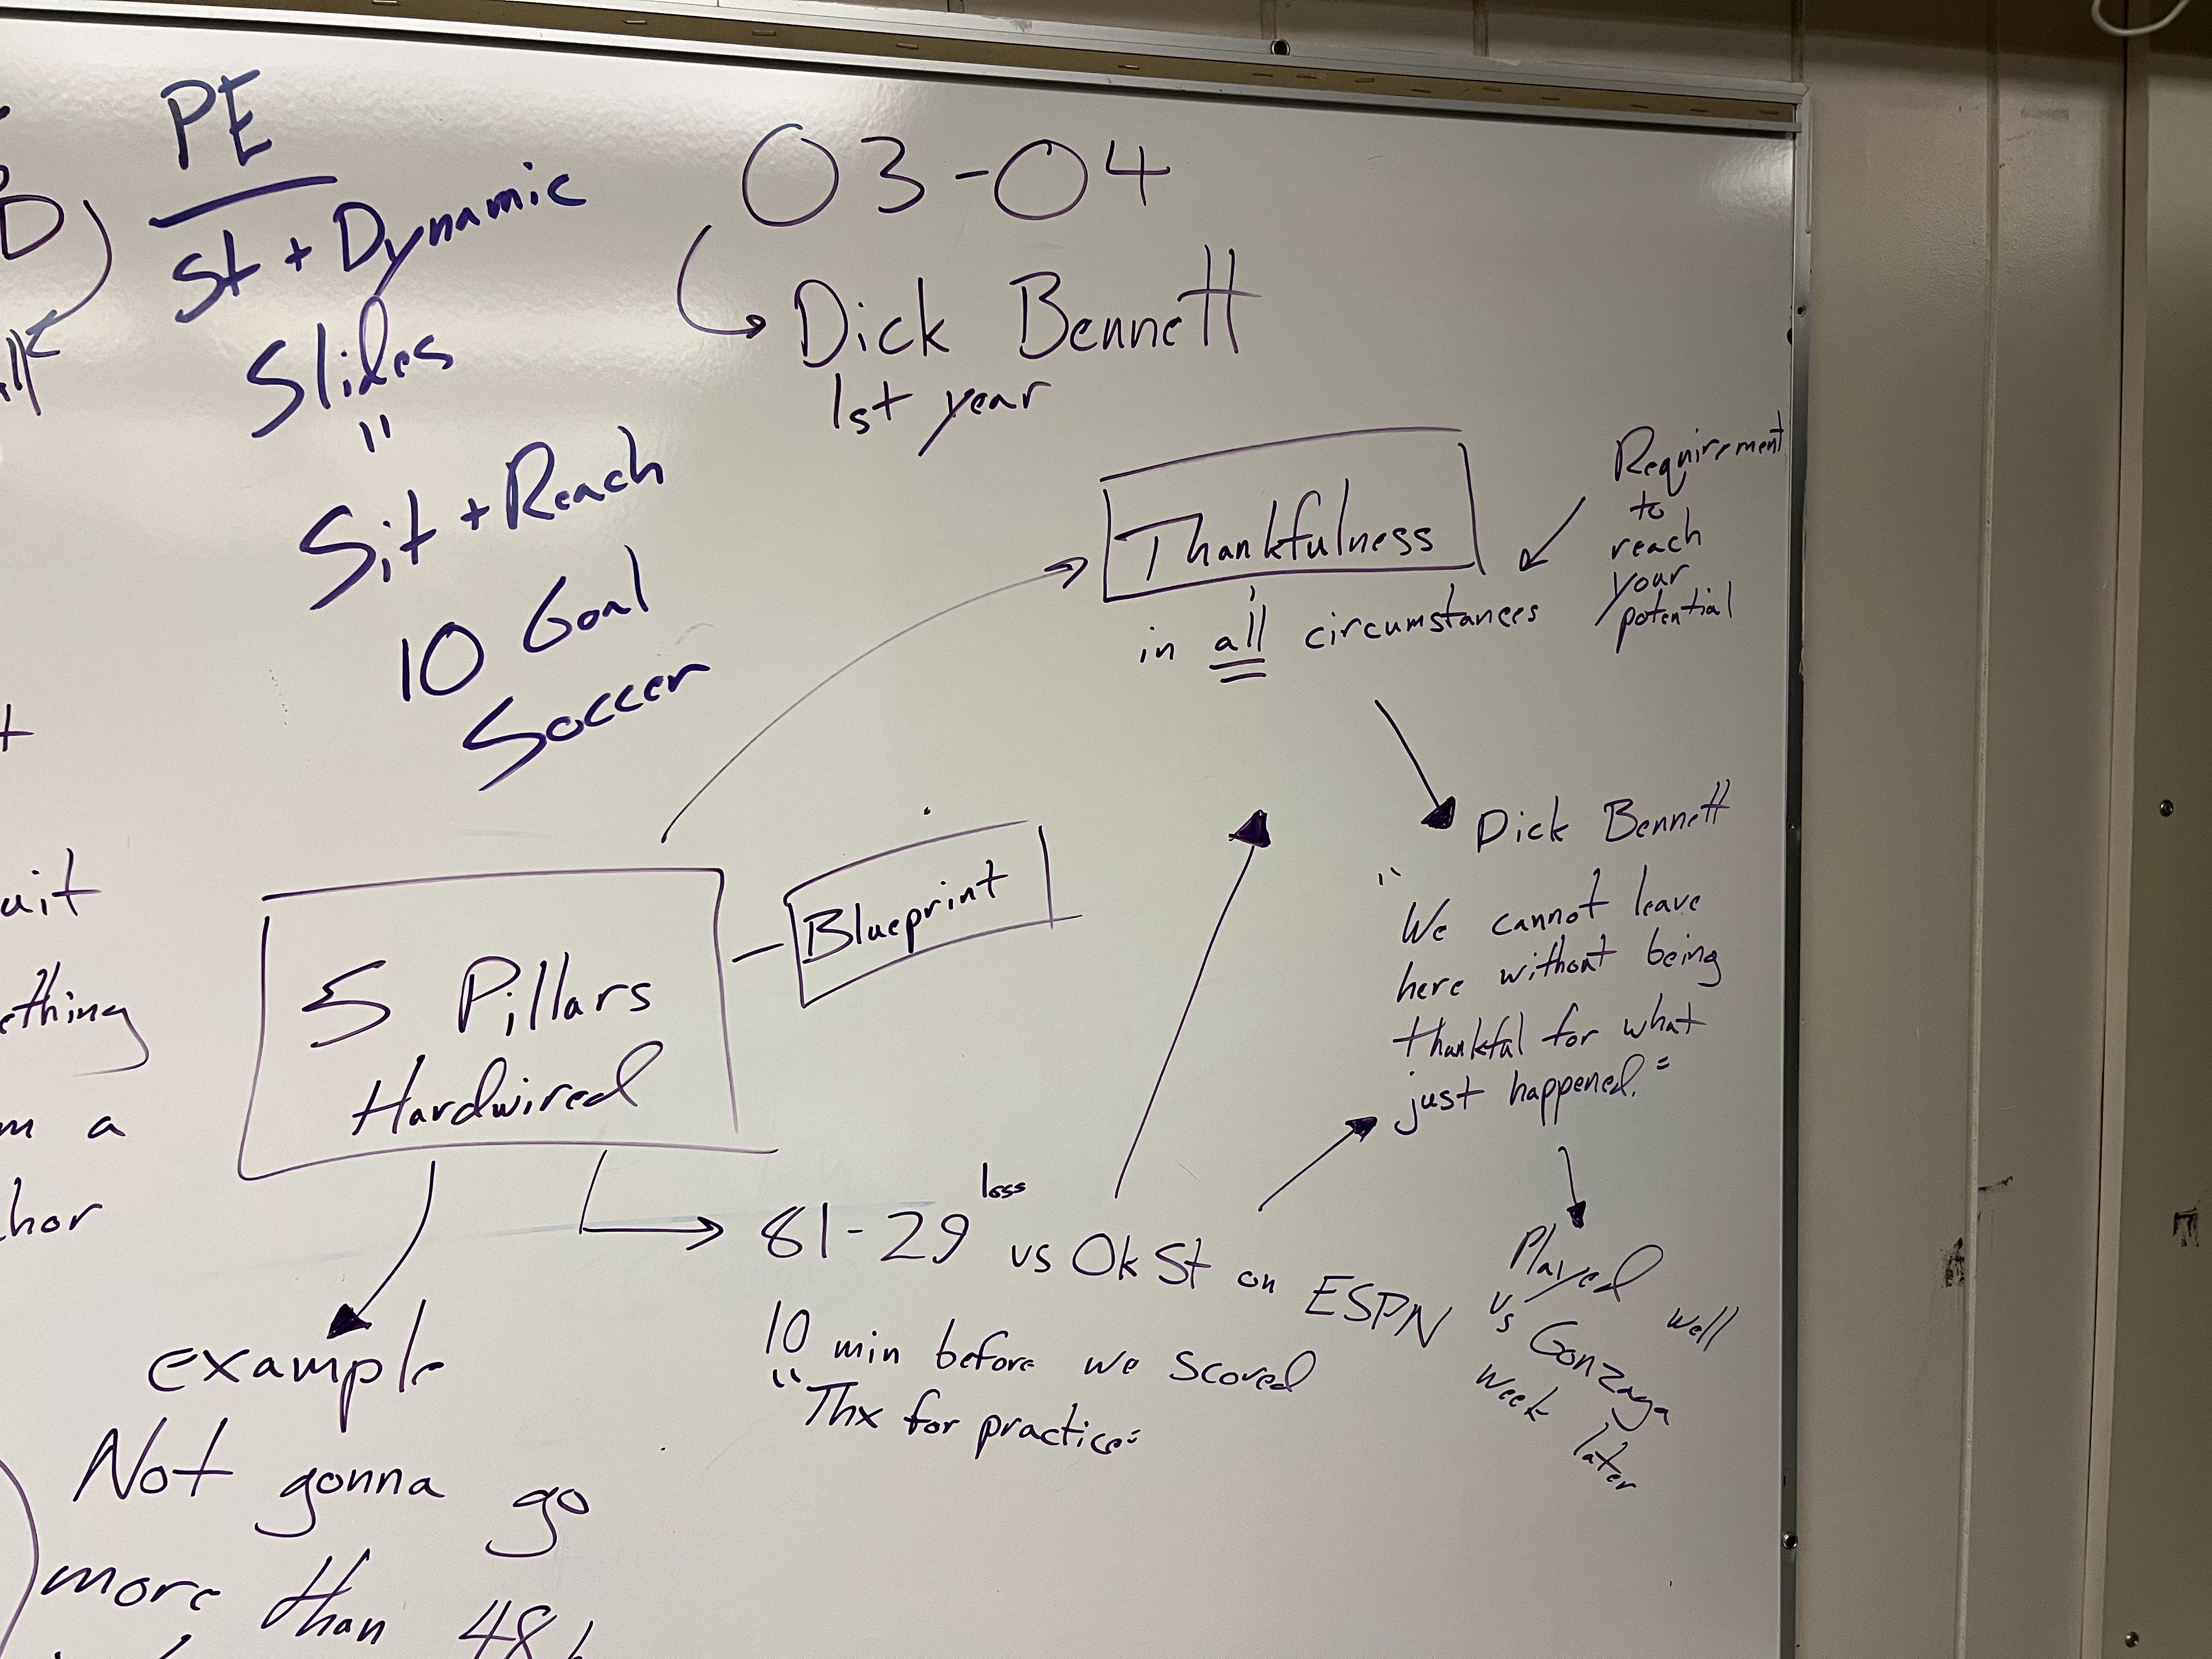 PE
St + Dynamic
Slides
"
Sit + Reach
10 Goal
Soccer
03-04
Dick Bennett
1st year
Thankfulness
in all circumstances
Requirement
to
reach
your
potential
Dick Bennett
"We cannot leave
here without being
thankful for what
just happened."
Played well
vs Gonzaga
week later
5 Pillars
Hardwired
Blueprint
81-29 loss vs Ok St on ESPN
10 min before we scored
"Thx for practice"
example
Not gonna go
more than 48
ething
a